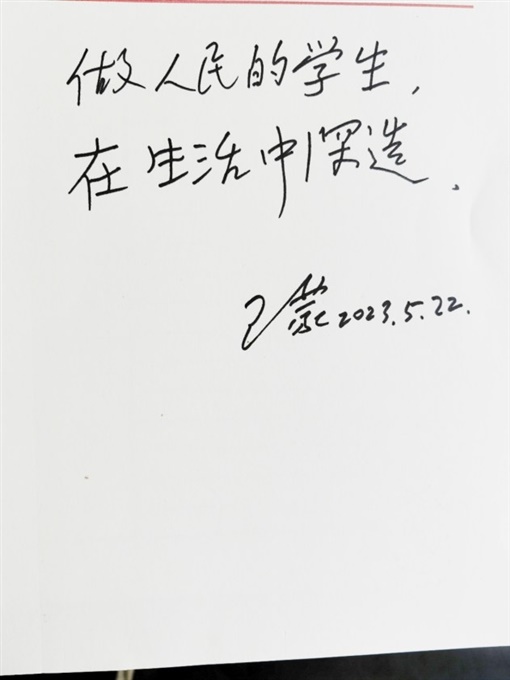 做人民的学生，
在生活中深造.
王蒙 2023.5.22.